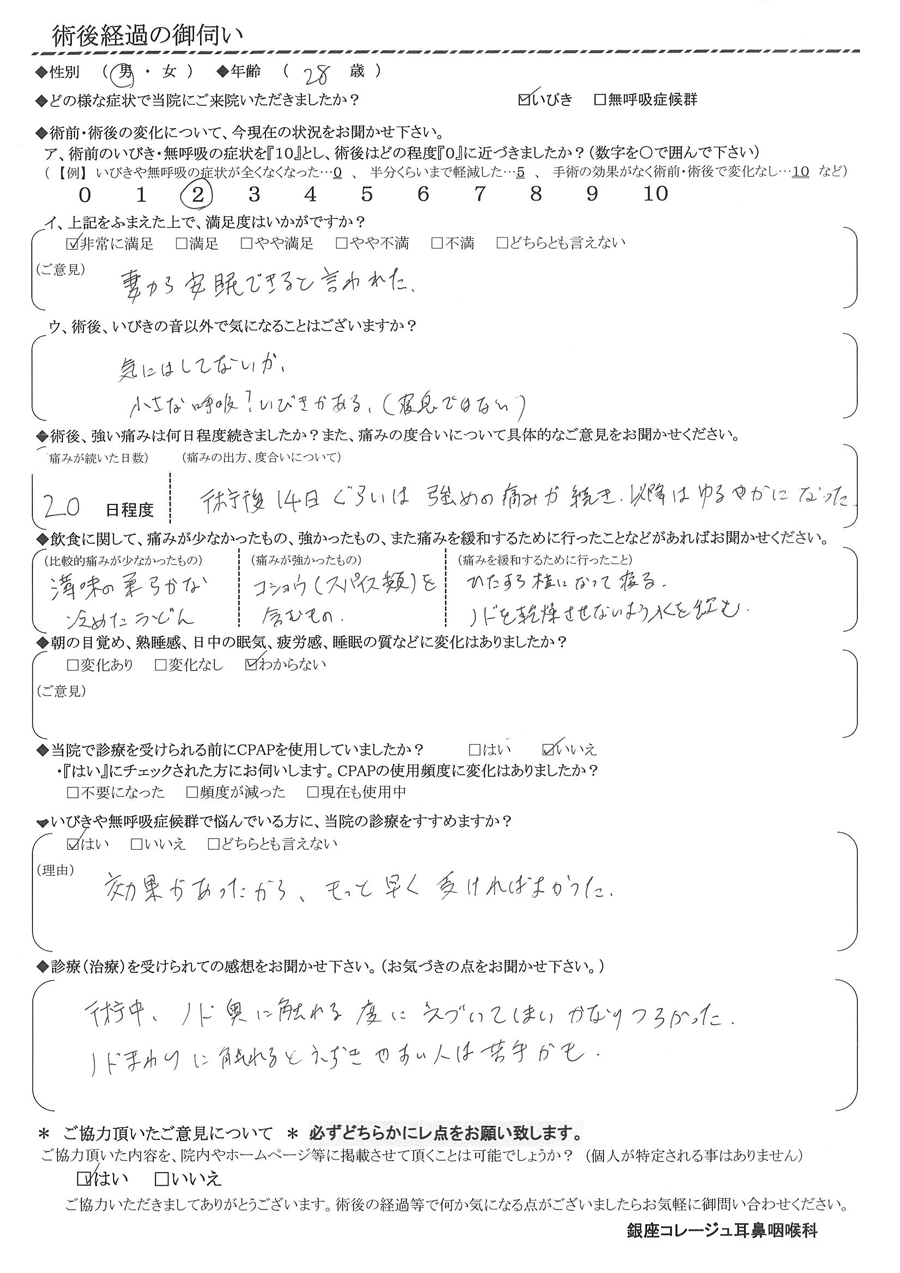 術後経過の御伺い
◆性別 （ 男 ・ 女 ） ◆年齢 （ 28 歳 ）
◆どの様な症状で当院にご来院いただきましたか？ ☑いびき □無呼吸症候群
◆術前・術後の変化について、今現在の状況をお聞かせ下さい。
ア、術前のいびき・無呼吸の症状を『10』とし、術後はどの程度『0』に近づきましたか？（数字を〇で囲んで下さい）
（ 【例】 いびきや無呼吸の症状が全くなくなった…0 、 半分くらいまで軽減した…5 、 手術の効果がなく術前・術後で変化なし…10 など）
0 1 2 3 4 5 6 7 8 9 10
イ、上記をふまえた上で、満足度はいかがですか？
☑非常に満足 □満足 □やや満足 □やや不満 □不満 □どちらとも言えない
（ご意見）
妻から安眠できると言われた。
ウ、術後、いびきの音以外で気になることはございますか？
気にはしてないが、
小さな呼吸？いびきがある。（寝息ではない）
◆術後、強い痛みは何日程度続きましたか？また、痛みの度合いについて具体的なご意見をお聞かせください。
痛みが続いた日数） （痛みの出方、度合いについて）
20 日程度 術後14日ぐらいは強めの痛みが続き、以降はゆるやかになった。
◆飲食に関して、痛みが少なかったもの、強かったもの、また痛みを緩和するために行ったことなどがあればお聞かせください。
（比較的痛みが少なかったもの） （痛みが強かったもの） （痛みを緩和するために行ったこと）
薄味の柔らかな コショウ（スパイス類）を ひたすら横になって寝る。
冷めたうどん 含むもの。 ノドを乾燥させないよう水を飲む。
◆朝の目覚め、熟睡感、日中の眠気、疲労感、睡眠の質などに変化はありましたか？
□変化あり □変化なし ☑わからない
（ご意見）
◆当院で診療を受けられる前にCPAPを使用していましたか？ □はい ☑いいえ
・『はい』にチェックされた方にお伺いします。CPAPの使用頻度に変化はありましたか？
□不要になった □頻度が減った □現在も使用中
◆いびきや無呼吸症候群で悩んでいる方に、当院の診療をすすめますか？
☑はい □いいえ □どちらとも言えない
（理由）
効果があったから、もっと早く受ければよかった。
◆診療（治療）を受けられての感想をお聞かせ下さい。（お気づきの点をお聞かせ下さい。）
術中、ノド奥に触れる度にえづいてしまいかなりつらかった。
ノドまわりに触れるとえずきやすい人は苦手かも。
＊ ご協力頂いたご意見について ＊ 必ずどちらかにレ点をお願い致します。
ご協力頂いた内容を、院内やホームページ等に掲載させて頂くことは可能でしょうか？ （個人が特定される事はありません）
☑はい □いいえ
ご協力いただきましてありがとうございます。術後の経過等で何か気になる点がございましたらお気軽に御問い合わせください。
銀座コレージュ耳鼻咽喉科